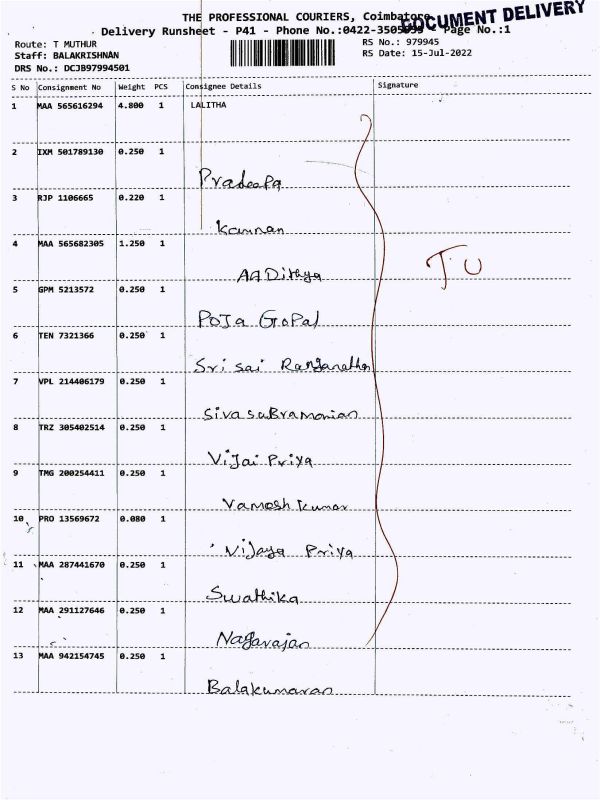 THE PROFESSIONAL COURIERS, Coimbatore
DOCUMENT DELIVERY
Delivery Runsheet - P41 - Phone No.:0422-3505 Page No.:1
Route: T MUTHUR RS No.: 979945
Staff: BALAKRISHNAN RS Date: 15-Jul-2022
DRS No.: DCJB97994501
S No Consignment No Weight PCS Consignee Details Signature
1 MAA 565616294 4.800 1 LALITHA
2 IXM 501789130 0.250 1
Pradeepa
3 RJP 1106665 0.220 1
Kannan
4 MAA 565682305 1.250 1
AADithya
T.U
5 GPM 5213572 0.250 1
PoJa GoPal
6 TEN 7321366 0.250 1
Sri sai Ranganathan
7 VPL 214406179 0.250 1
SivasuBramanian
8 TRZ 305402514 0.250 1
ViJai Priya
9 TMG 200254411 0.250 1
Vamosh kumar
10 PRO 13569672 0.080 1
Vijaya Priya
11 MAA 287441670 0.250 1
Swathika
12 MAA 291127646 0.250 1
Nagarajan
13 MAA 942154745 0.250 1
Balakumaran